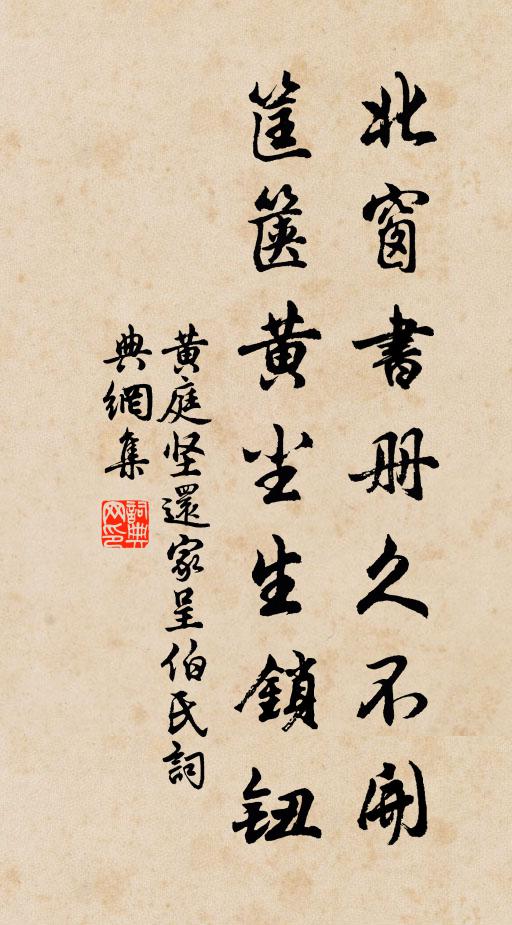 北窗書册久不開
筐篋黄尘生鎖鈕
黄庭坚還家呈伯氏詞
典網集
詞典网印